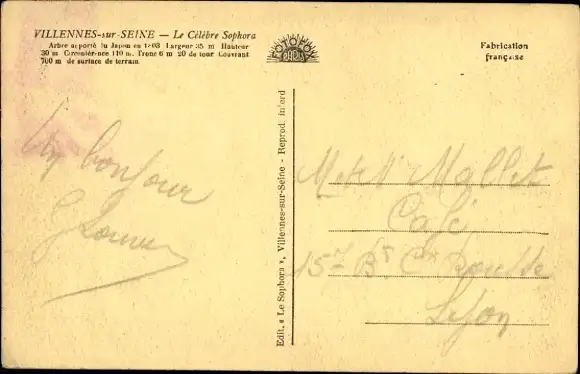 VILLENNES-sur-SEINE — Le Célèbre Sophora
Arbre apporté du Japon en 1803 Largeur 35 m Hauteur
30 m Circonférence 110 m. Tronc 6 m 20 de tour Couvrant
700 m de surface de terrain
FOTOFOX
PARIS
Fabrication
française
Edit. « Le Sophora », Villennes-sur-Seine - Reprod. interd
Un bonjour
G
Mallet
Café
157 Bd Cx Rousse
Lyon